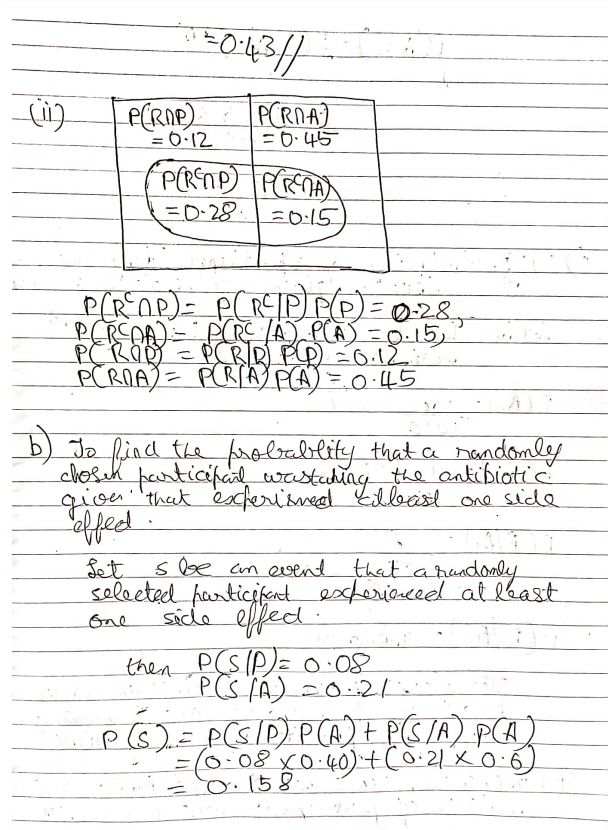 =0.43//
(ii)
P(R∩P) P(R∩A)
= 0.12 = 0.45
P(Rᶜ∩P) P(Rᶜ∩A)
=0.28 =0.15
P(Rᶜ∩P) = P(Rᶜ|P) P(P) = 0.28,
P(Rᶜ∩A) = P(Rᶜ/A) P(A) = 0.15,
P(R∩P) = P(R|P) P(P) = 0.12
P(R∩A) = P(R|A) P(A) = 0.45
b) To find the probablity that a randomly
chosen participant was taking the antibiotic
given that experienced atleast one side
effed.
Let s be an event that a randomly
selected participant experienced at least
one side effed.
then P(S|P) = 0.08
P(S/A) = 0.21.
P(S) = P(S/P) P(A) + P(S/A) P(A)
= (0.08 x 0.40) + (0.21 x 0.6)
= 0.158